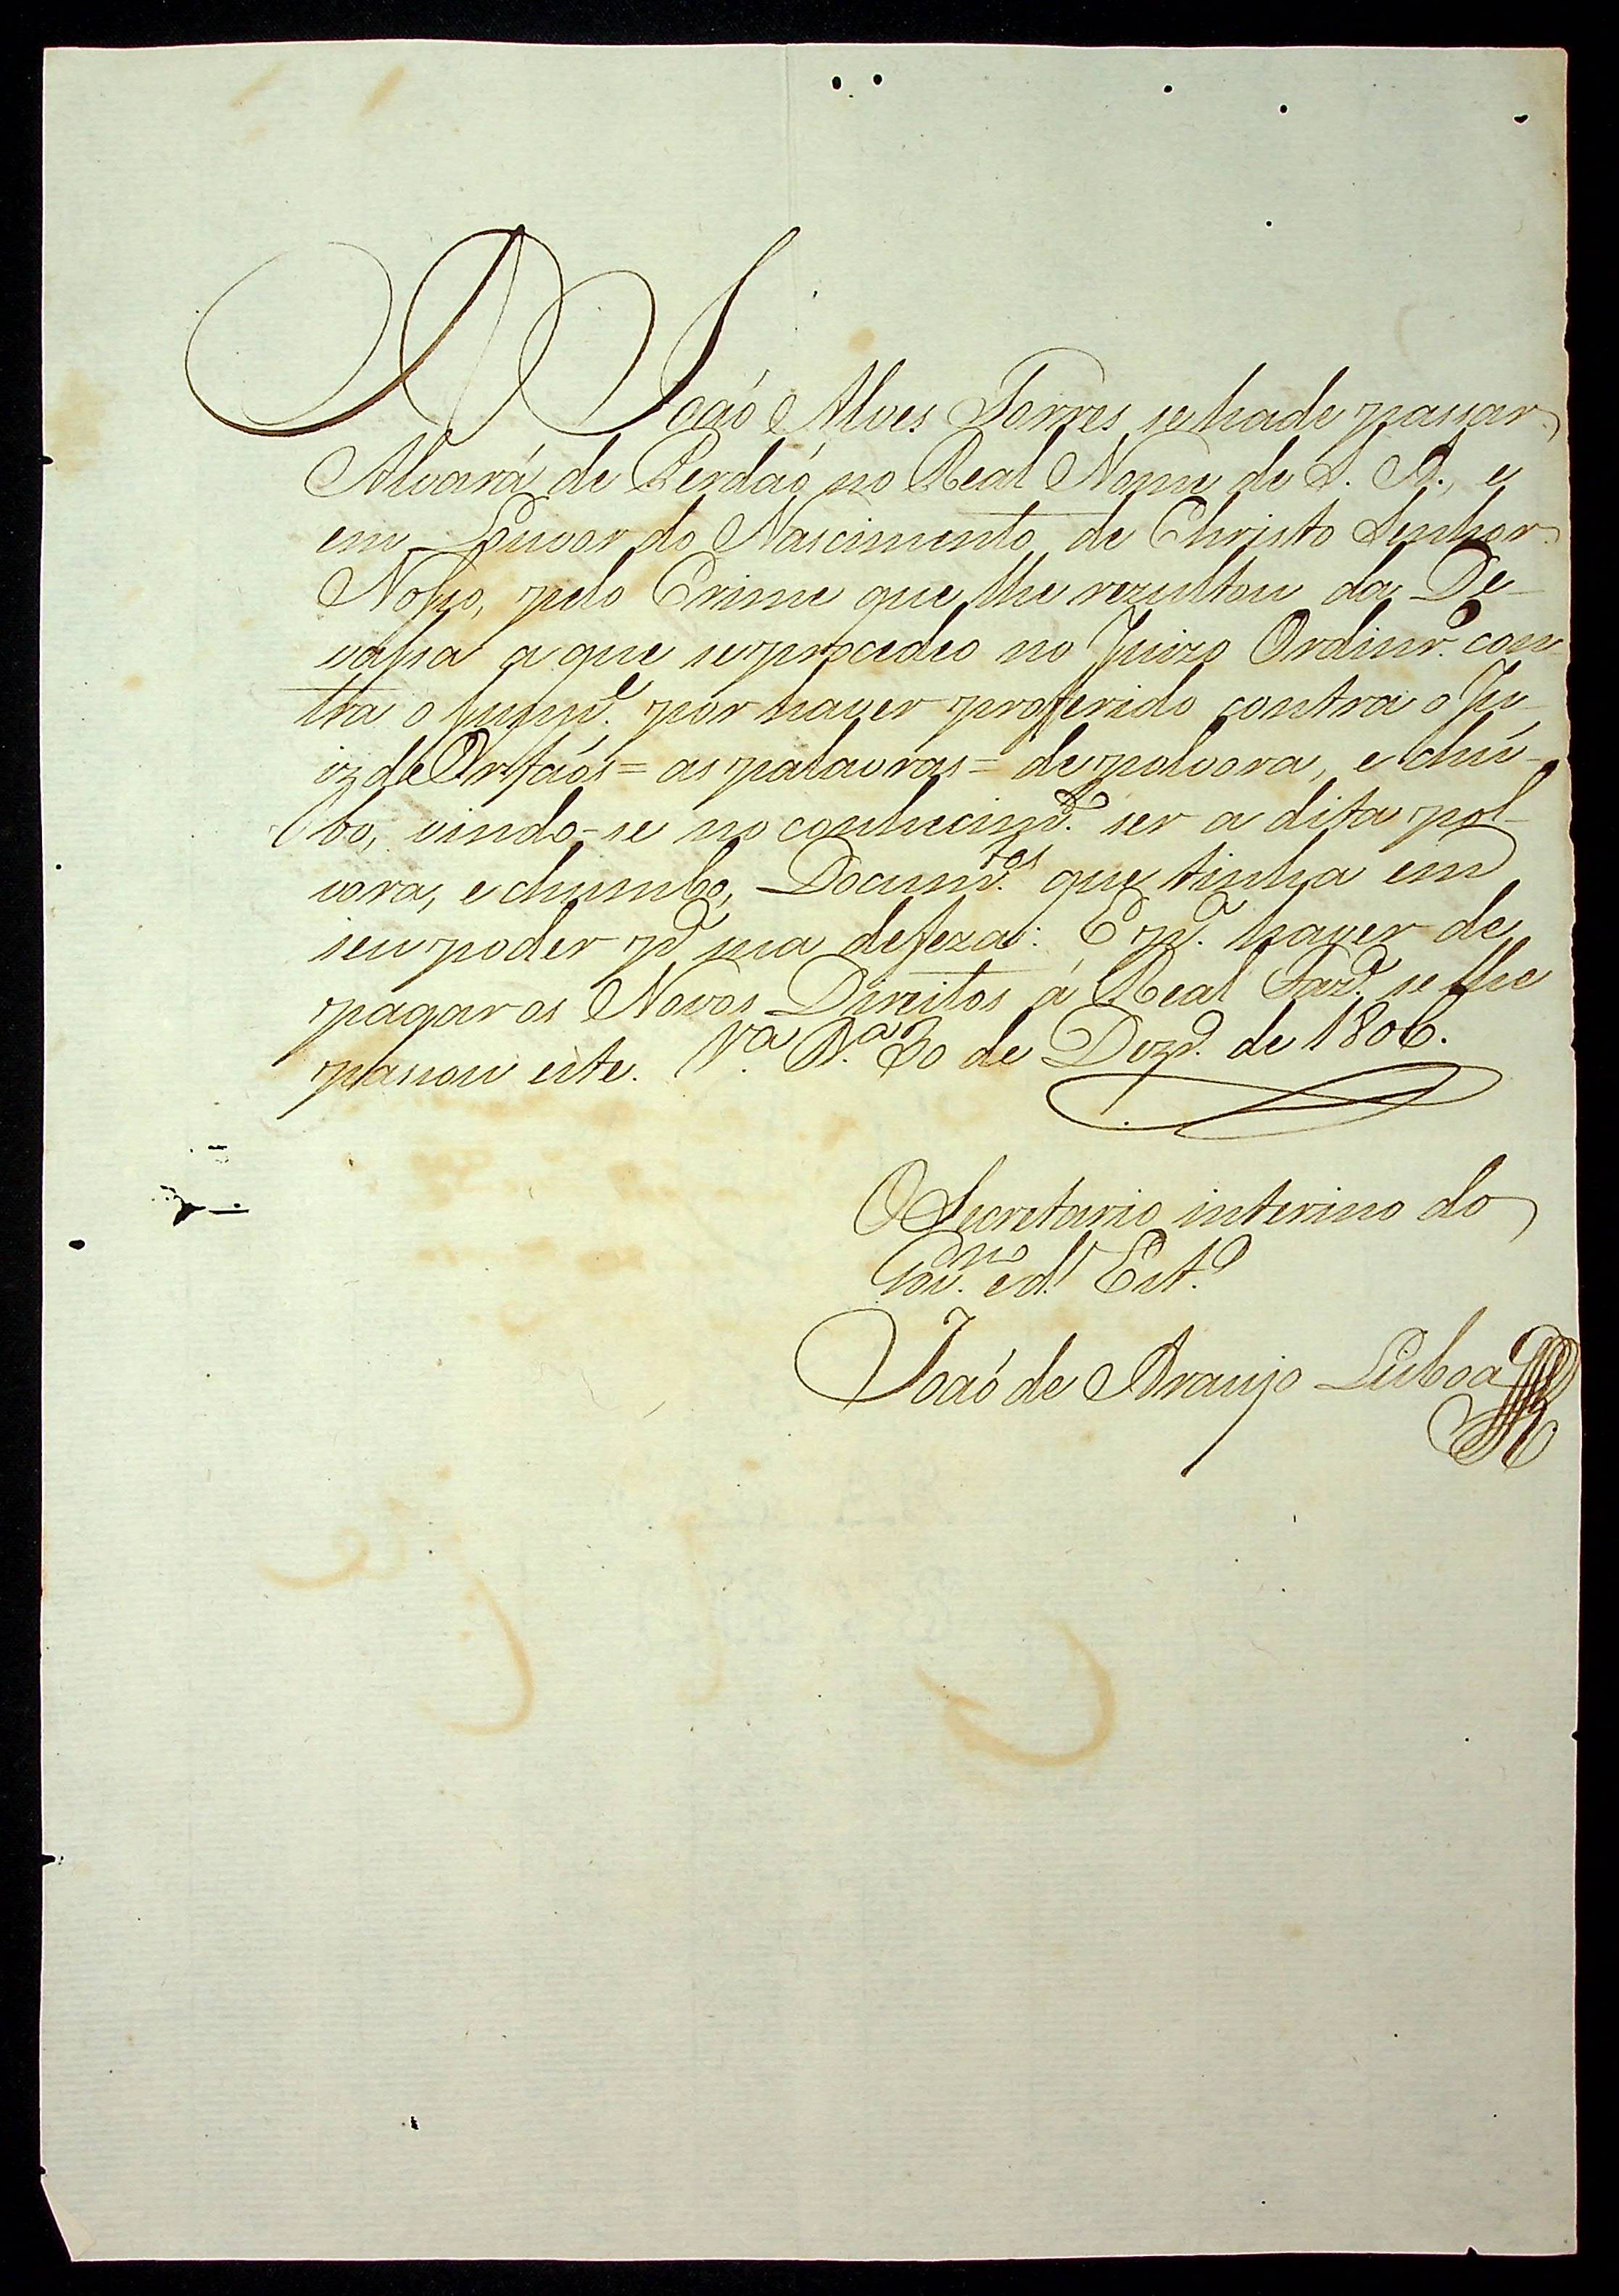 A João Alves Torres se hade passar
Alvará de Perdaó no Real Nome de S. A., e
em Louvor do Nascimento de Christo Senhor
Nosso, pelo Crime que lhe rezultou da De-
vassa a que se procedeo no Juizo Ordinr.º con
tra o supp.e por haver proferido contra o Ju-
iz de Orfaós = as palavras = de polvora, e chú-
bo, vindo-se no conhecim.to ser a dita pol-
vora, e chumbo, Docum.tos que tinha em
seu poder p.a sua defeza: E p.a haver de
pagar os Novos Direitos á Real Faz.da se lhe
passou este. V.a B.a 30 de Dezb.o de 1806.
O Secretario interino do
Gov.no e d.o Est.o
Joaó de Araujo Lisboa